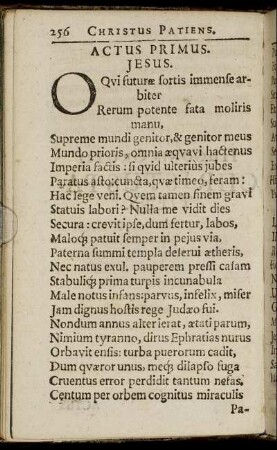 256 CHRISTUS PATIENS.
ACTUS PRIMUS.
JESUS.
O Qvi futuræ sortis immense ar-
biter
Rerum potente fata moliris
manu,
Supreme mundi genitor, & genitor meus
Mundo prioris, omnia æqvavi hactenus
Imperia factis: si qvid ulterius jubes
Paratus asto: cuncta, qvæ timeo, feram:
Hac lege veni. Qvem tamen finem gravi
Statuis labori? Nulla me vidit dies
Secura: crevit ipse, dum fertur, labos,
Maloq; patuit semper in pejus via.
Paterna summi templa deserui ætheris,
Nec natus exul, pauperem pressi casam
Stabuliq; prima turpis incunabula
Male notus infans: parvus, infelix, miser
Jam dignus hostis rege Judæo fui.
Nondum annus alter ierat, ætati parum,
Nimium tyranno, dirus Ephratias nurus
Orbavit ensis: turba puerorum cadit,
Dum qværor unus: meq; dilapso fuga
Cruentus error perdidit tantum nefas.
Centum per orbem cognitus miraculis
Pa-